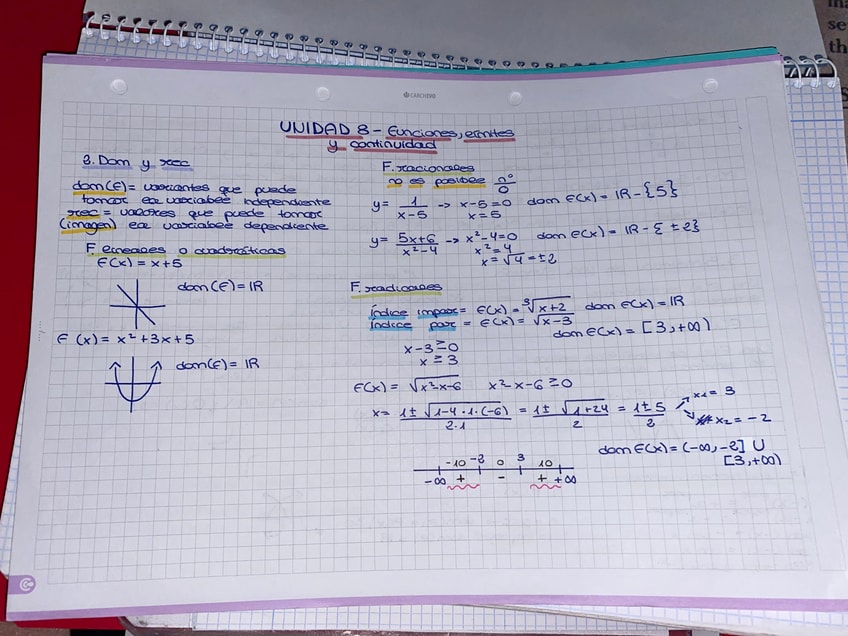 CARCHIVO
UNIDAD 8 - Funciones, límites
y continuidad
3. Dom y rec
dom(f) = variantes que puede
tomar la variable independiente
rec = valores que puede tomar
(imagen) la variable dependiente
F. lineales o cuadráticas
f(x) = x+5
dom(f) = IR
f(x) = x²+3x+5
dom(f) = IR
F. racionales
no es posible nº/0
y = 1/(x-5) -> x-5=0 dom f(x) = IR - {5}
x=5
y = (5x+6)/(x²-4) -> x²-4=0 dom f(x) = IR - { ±2}
x²=4
x=√4 = ±2
F. radicales
índice impar = f(x) = ³√(x+2) dom f(x) = IR
índice par = f(x) = √(x-3)
dom f(x) = [3,+∞)
x-3≥0
x ≥ 3
f(x) = √(x²-x-6) x²-x-6≥0
x = (1±√(1-4·1·(-6)))/(2·1) = (1±√(1+24))/2 = (1±5)/2 x1 = 3
x2 = -2
-10 -2 0 3 10
-∞ + - + +∞
dom f(x) = (-∞,-2] U
[3,+∞)